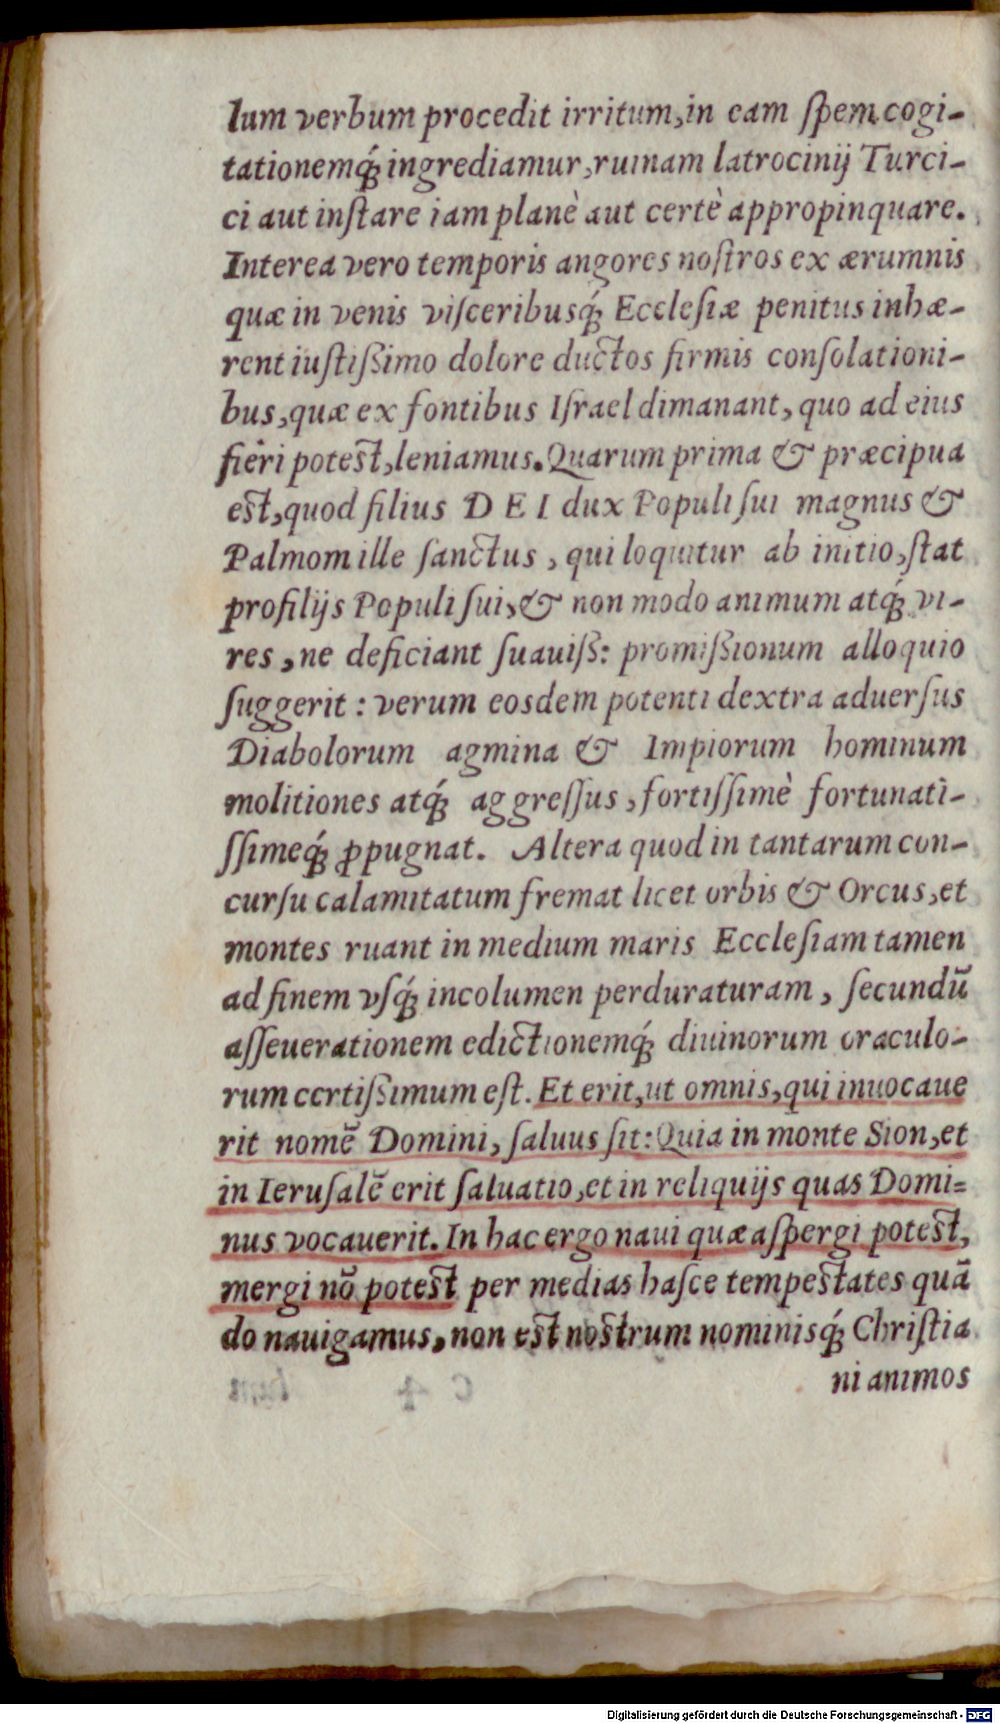 lum verbum procedit irritum, in eam ſpem cogi-
tationemq́ꝫ ingrediamur, ruinam latrocinij Turci-
ci aut inſtare iam planè aut certè appropinquare.
Interea vero temporis angores noſtros ex ærumnis
quæ in venis viſceribusq́ꝫ Eccleſiæ penitus inhæ-
rent iuſtiſsimo dolore ductos firmis conſolationi-
bus, quæ ex fontibus Iſrael dimanant, quo ad eius
fieri potest, leniamus. Quarum prima & præcipua
est, quod filius D E I dux Populi ſui magnus &
Palmom ille ſanctus, qui loquitur ab initio, ſtat
profilijs Populi ſui, & non modo animum atq́ꝫ vi-
res, ne deficiant ſuauiſs: promiſsionum alloquio
ſuggerit: verum eosdem potenti dextra aduerſus
Diabolorum agmina & Impiorum hominum
molitiones atq́ꝫ aggreſſus, fortiſſimè fortunati-
ſſimeq́ꝫ ꝓpugnat. Altera quod in tantarum con-
curſu calamitatum fremat licet orbis & Orcus, et
montes ruant in medium maris Eccleſiam tamen
ad finem vſq́ꝫ incolumen perduraturam, ſecundū
aſſeuerationem edictionemq́ꝫ diuinorum oraculo-
rum certiſsimum eſt. Et erit, ut omnis, qui inuocaue
rit nomē Domini, ſaluus ſit: Quia in monte Sion, et
in Ieruſalē erit ſaluatio, et in reliquijs quas Domi=
nus vocauerit. In hac ergo naui quæ aſpergi potest,
mergi nō potest per medias haſce tempestates quā
do nauigamus, non est nostrum nominisq́ꝫ Chriſtia
ni animos
Digitalisierung gefördert durch die Deutsche Forschungsgemeinschaft - DFG